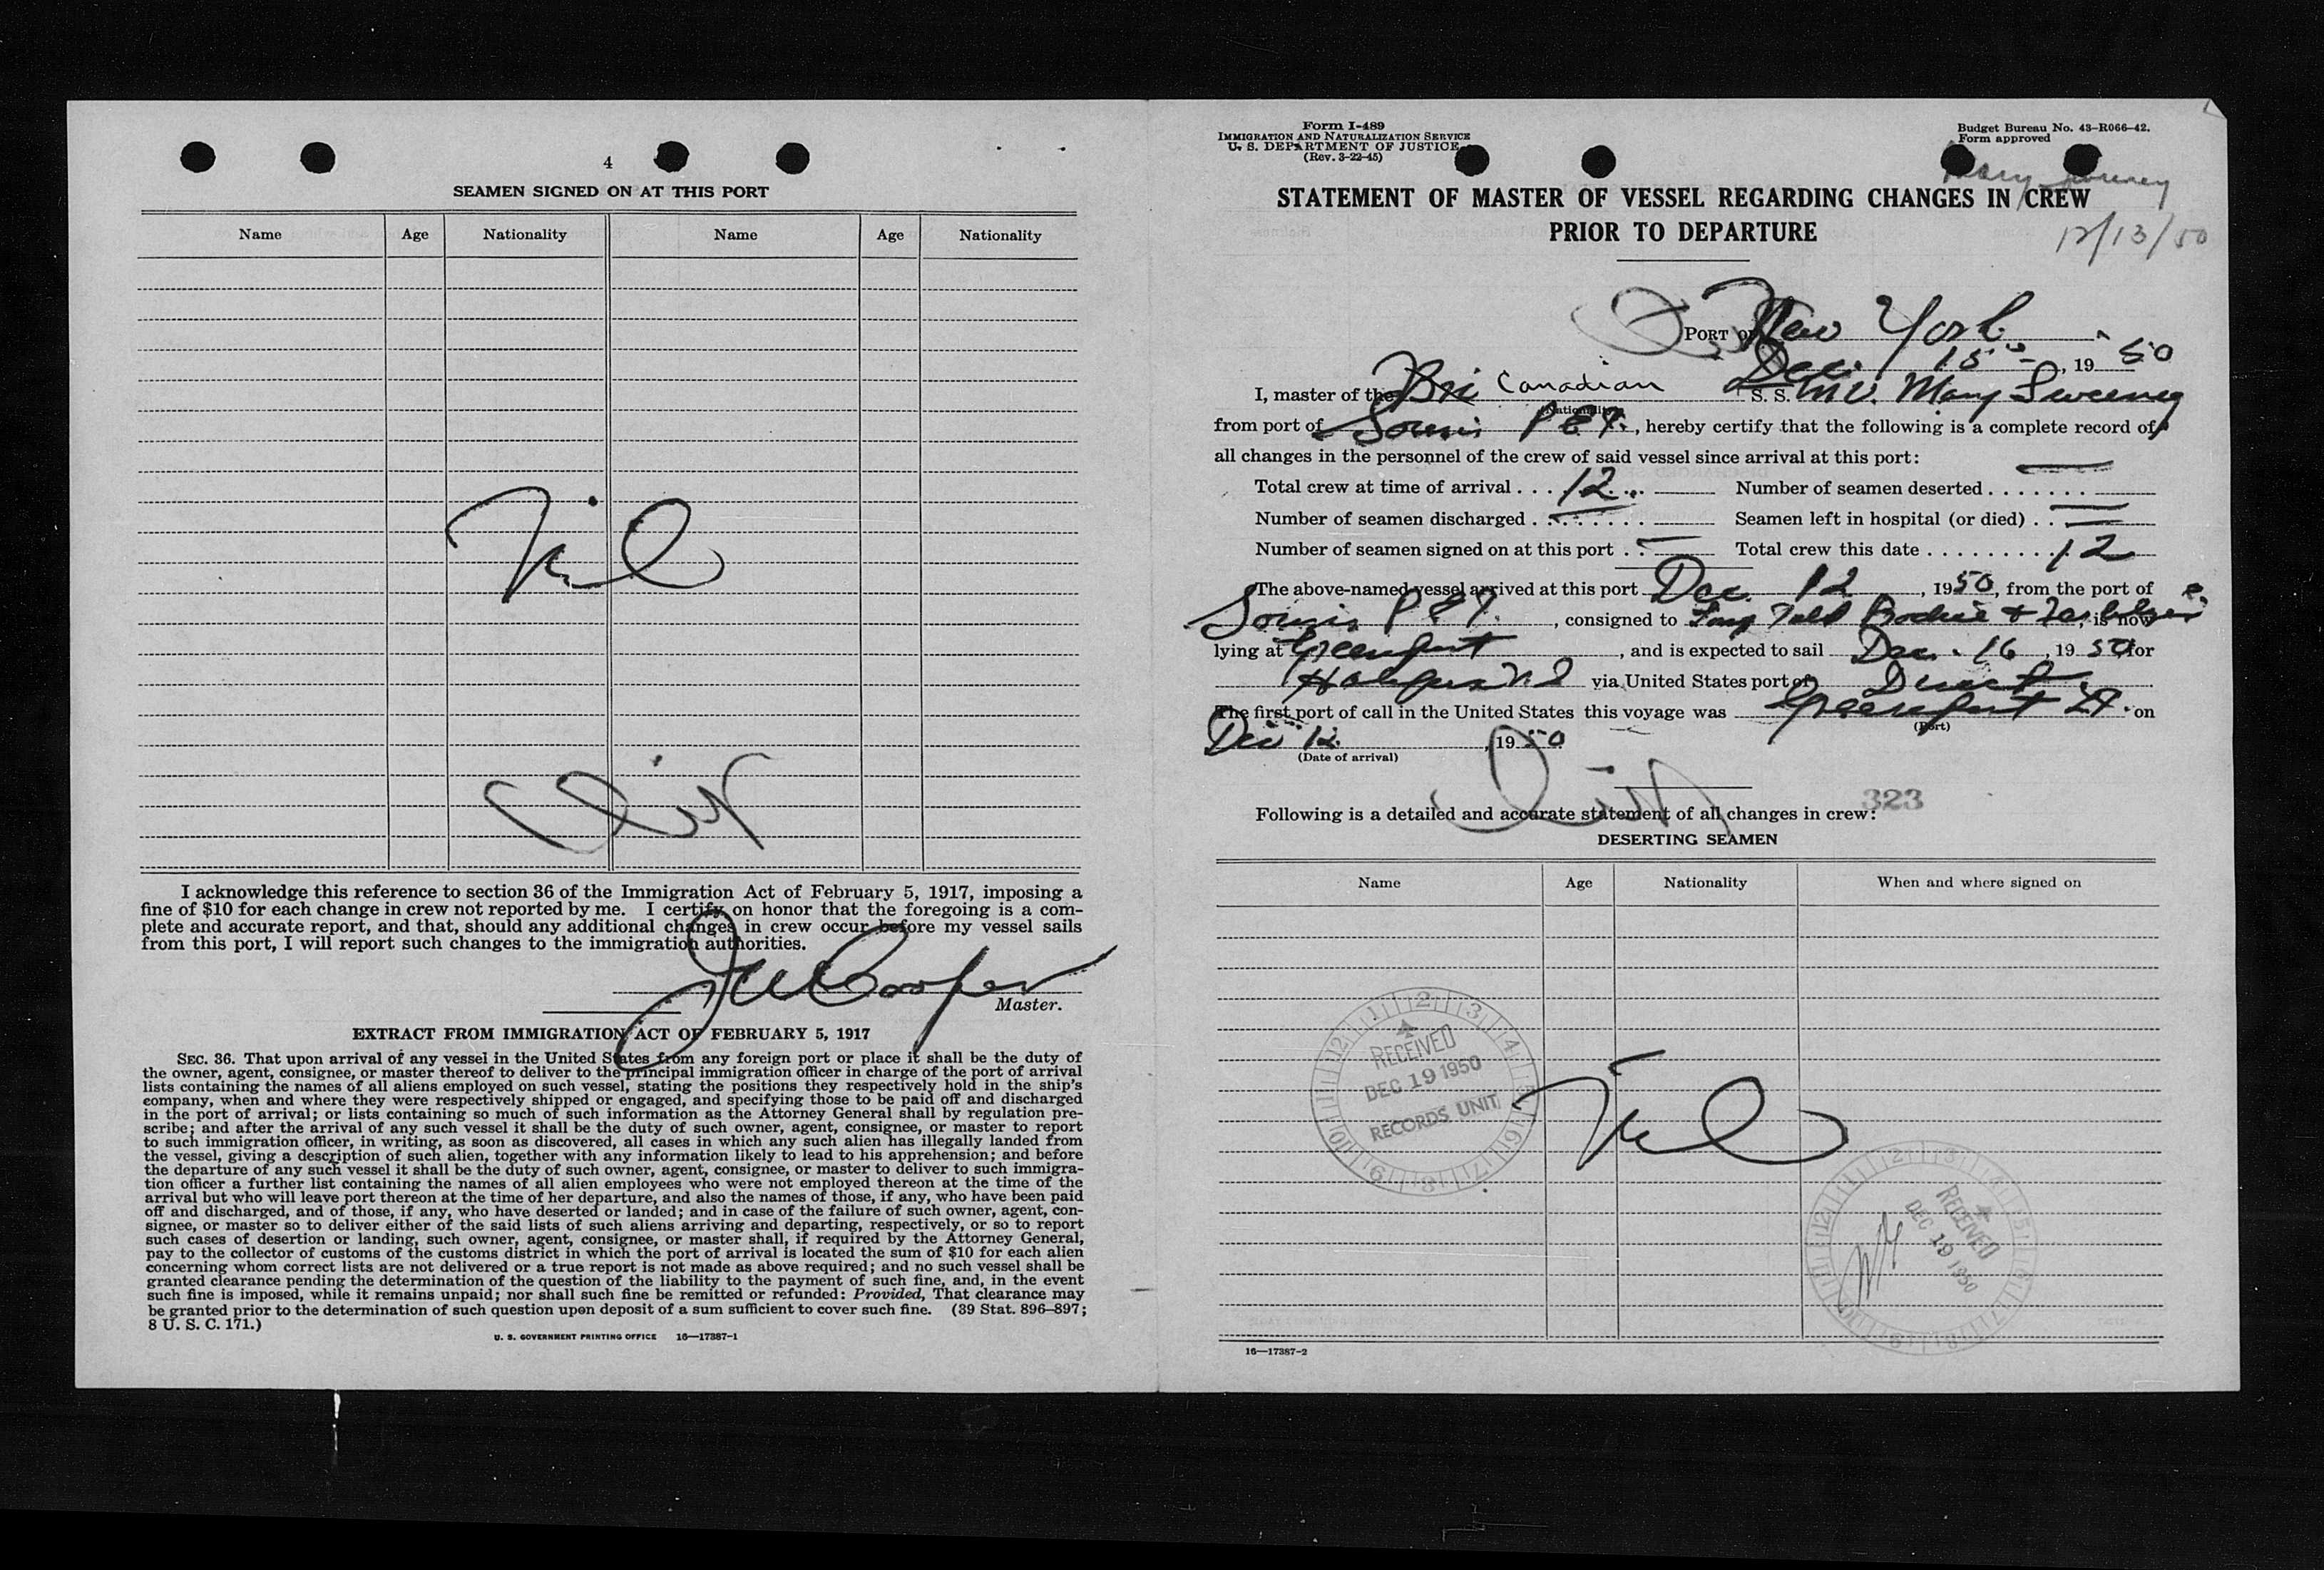 4
SEAMEN SIGNED ON AT THIS PORT
Name Age Nationality Name Age Nationality
Nil
I acknowledge this reference to section 36 of the Immigration Act of February 5, 1917, imposing a
fine of $10 for each change in crew not reported by me. I certify on honor that the foregoing is a com-
plete and accurate report, and that, should any additional changes in crew occur before my vessel sails
from this port, I will report such changes to the immigration authorities.
J W Cooper
Master.
EXTRACT FROM IMMIGRATION ACT OF FEBRUARY 5, 1917
SEC. 36. That upon arrival of any vessel in the United States from any foreign port or place it shall be the duty of
the owner, agent, consignee, or master thereof to deliver to the principal immigration officer in charge of the port of arrival
lists containing the names of all aliens employed on such vessel, stating the positions they respectively hold in the ship's
company, when and where they were respectively shipped or engaged, and specifying those to be paid off and discharged
in the port of arrival; or lists containing so much of such information as the Attorney General shall by regulation pre-
scribe; and after the arrival of any such vessel it shall be the duty of such owner, agent, consignee, or master to report
to such immigration officer, in writing, as soon as discovered, all cases in which any such alien has illegally landed from
the vessel, giving a description of such alien, together with any information likely to lead to his apprehension; and before
the departure of any such vessel it shall be the duty of such owner, agent, consignee, or master to deliver to such immigra-
tion officer a further list containing the names of all alien employees who were not employed thereon at the time of the
arrival but who will leave port thereon at the time of her departure, and also the names of those, if any, who have been paid
off and discharged, and of those, if any, who have deserted or landed; and in case of the failure of such owner, agent, con-
signee, or master so to deliver either of the said lists of such aliens arriving and departing, respectively, or so to report
such cases of desertion or landing, such owner, agent, consignee, or master shall, if required by the Attorney General,
pay to the collector of customs of the customs district in which the port of arrival is located the sum of $10 for each alien
concerning whom correct lists are not delivered or a true report is not made as above required; and no such vessel shall be
granted clearance pending the determination of the question of the liability to the payment of such fine, and, in the event
such fine is imposed, while it remains unpaid; nor shall such fine be remitted or refunded: Provided, That clearance may
be granted prior to the determination of such question upon deposit of a sum sufficient to cover such fine. (39 Stat. 896–897;
8 U. S. C. 171.)
U. S. GOVERNMENT PRINTING OFFICE 16—17387-1
Form I-489
IMMIGRATION AND NATURALIZATION SERVICE
U. S. DEPARTMENT OF JUSTICE
(Rev. 3-22-45)
Budget Bureau No. 43-R066-42.
Form approved
Mary Sweeney
12/13/50
STATEMENT OF MASTER OF VESSEL REGARDING CHANGES IN CREW
PRIOR TO DEPARTURE
PORT OF New York
Dec. 15, 1950
I, master of the Bri Canadian S. S. M.V. Mary Sweeney
(Nationality)
from port of Souris P E I., hereby certify that the following is a complete record of
all changes in the personnel of the crew of said vessel since arrival at this port:
Total crew at time of arrival . . . 12 Number of seamen deserted . . . . . . . —
Number of seamen discharged . . . . . . . . — Seamen left in hospital (or died) . . —
Number of seamen signed on at this port . . — Total crew this date . . . . . . . . . 12
The above-named vessel arrived at this port Dec. 12, 1950, from the port of
Souris P. E. I., consigned to Brodie &, is now
lying at Greenport, and is expected to sail Dec. 16, 1950 for
Halifax N.S via United States port of Direct
The first port of call in the United States this voyage was Greenport on
(Port)
Dec 12, 1950
(Date of arrival)
323
Following is a detailed and accurate statement of all changes in crew:
DESERTING SEAMEN
Name Age Nationality When and where signed on
RECEIVED
DEC 19 1950
RECORDS UNIT
Nil
RECEIVED
DEC 19 1950
16—17387-2